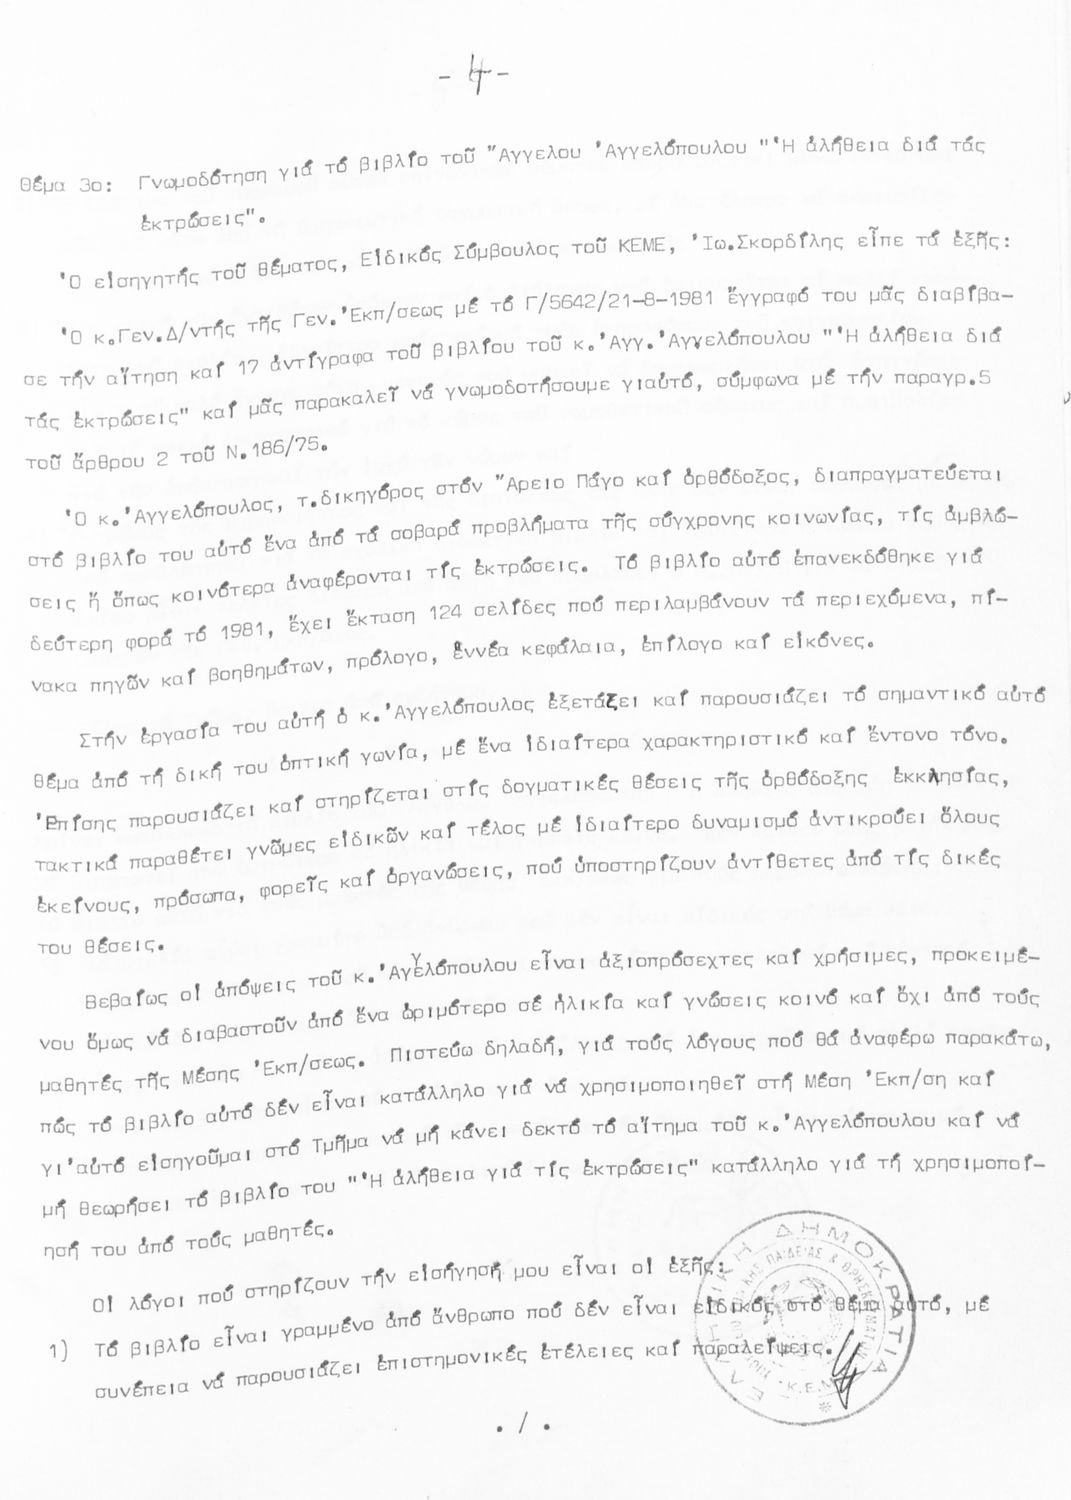 - 4 -
θέμα 3ο: Γνωμοδότηση γιά τό βιβλίο τοῦ "Αγγελου 'Αγγελόπουλου "'Η ἀλήθεια διά τάς
ἐκτρώσεις".
'Ο εἰσηγητής τοῦ θέματος, Εἰδικός Σύμβουλος τοῦ ΚΕΜΕ, 'Ιω.Σκορδίλης εἶπε τά ἑξῆς:
'Ο κ.Γεν.Δ/ντής τῆς Γεν.'Εκπ/σεως μέ τό Γ/5642/21-8-1981 ἔγγραφό του μᾶς διαβίβα-
σε τήν αἴτηση καί 17 ἀντίγραφα τοῦ βιβλίου τοῦ κ.'Αγγ.'Αγγελόπουλου "'Η ἀλήθεια διά
τάς ἐκτρώσεις" καί μᾶς παρακαλεῖ νά γνωμοδοτήσουμε γιαὐτό, σύμφωνα μέ τήν παραγρ.5
τοῦ ἄρθρου 2 τοῦ Ν.186/75.
'Ο κ.'Αγγελόπουλος, τ.δικηγόρος στόν "Αρειο Πάγο καί ὀρθόδοξος, διαπραγματεύεται
στό βιβλίο του αὐτό ἕνα ἀπό τά σοβαρά προβλήματα τῆς σύγχρονης κοινωνίας, τίς ἀμβλώ-
σεις ἤ ὅπως κοινότερα ἀναφέρονται τίς ἐκτρώσεις. Τό βιβλίο αὐτό ἐπανεκδόθηκε γιά
δεύτερη φορά τό 1981, ἔχει ἔκταση 124 σελίδες πού περιλαμβάνουν τά περιεχόμενα, πί-
νακα πηγῶν καί βοηθημάτων, πρόλογο, ἐννέα κεφάλαια, ἐπίλογο καί εἰκόνες.
Στήν ἐργασία του αὐτή ὁ κ.'Αγγελόπουλος ἐξετάζει καί παρουσιάζει τό σημαντικό αὐτό
θέμα ἀπό τή δική του ὀπτική γωνία, μέ ἕνα ἰδιαίτερα χαρακτηριστικό καί ἔντονο τόνο.
'Επίσης παρουσιάζει καί στηρίζεται στίς δογματικές θέσεις τῆς ὀρθόδοξης ἐκκλησίας,
τακτικά παραθέτει γνῶμες εἰδικῶν καί τέλος μέ ἰδιαίτερο δυναμισμό ἀντικρούει ὅλους
ἐκείνους, πρόσωπα, φορεῖς καί ὀργανώσεις, πού ὑποστηρίζουν ἀντίθετες ἀπό τίς δικές
του θέσεις.
Βεβαίως οἱ ἀπόψεις τοῦ κ.'Αγγελόπουλου εἶναι ἀξιοπρόσεχτες καί χρήσιμες, προκειμέ-
νου ὅμως νά διαβαστοῦν ἀπό ἕνα ὡριμότερο σέ ἡλικία καί γνώσεις κοινό καί ὄχι ἀπό τούς
μαθητές τῆς Μέσης 'Εκπ/σεως. Πιστεύω δηλαδή, γιά τούς λόγους πού θά ἀναφέρω παρακάτω,
πώς τό βιβλίο αὐτό δέν εἶναι κατάλληλο γιά νά χρησιμοποιηθεῖ στή Μέση 'Εκπ/ση καί
γι'αὐτό εἰσηγοῦμαι στό Τμῆμα νά μή κάνει δεκτό τό αἴτημα τοῦ κ.'Αγγελόπουλου καί νά
μή θεωρήσει τό βιβλίο του "'Η ἀλήθεια γιά τίς ἐκτρώσεις" κατάλληλο γιά τή χρησιμοποί-
ησή του ἀπό τούς μαθητές.
Οἱ λόγοι πού στηρίζουν τήν εἰσήγησή μου εἶναι οἱ ἑξῆς:
1) Τό βιβλίο εἶναι γραμμένο ἀπό ἄνθρωπο πού δέν εἶναι εἰδικός στό θέμα αὐτό, μέ
συνέπεια νά παρουσιάζει ἐπιστημονικές ἀτέλειες καί παραλείψεις.
./.
ΕΛΛΗΝΙΚΗ ΔΗΜΟΚΡΑΤΙΑ
ΠΑΙΔΕΙΑΣ & ΘΡΗΣΚΕΥΜΑΤΩΝ
Κ.Ε.Μ.Ε.